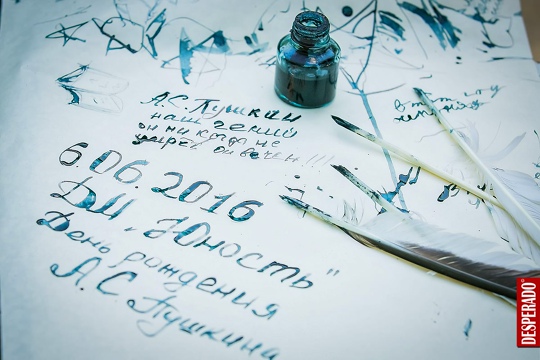 А.С. Пушкин
наш гений
он никогда не
умрёт он вечен!!!
6.06.2016
ДМ "Юность"
День рождения
А.С. Пушкина
DESPERADO